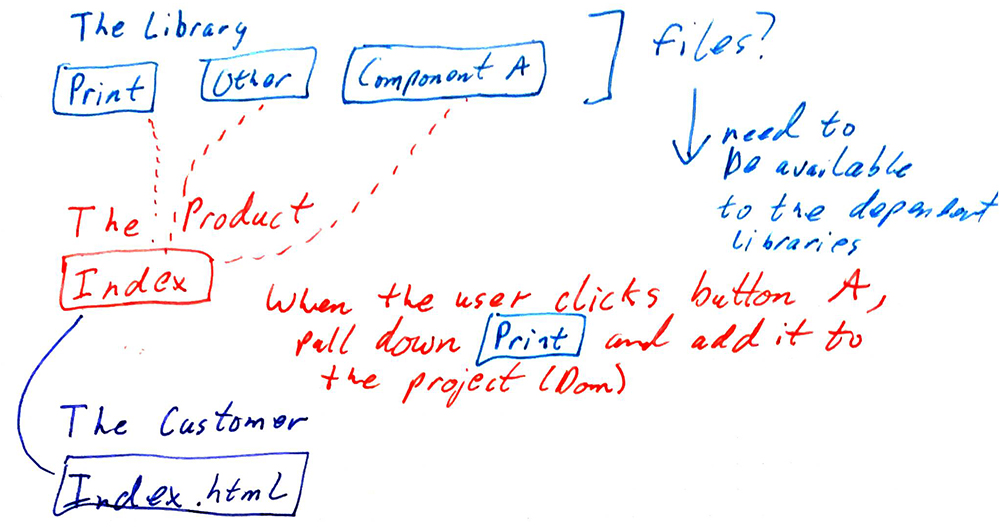 The Library
files?
Print
Other
Component A
need to
be available
to the dependent
libraries
The Product
Index
When the user clicks button A,
pull down Print and add it to
the project (Dom)
The Customer
Index.html